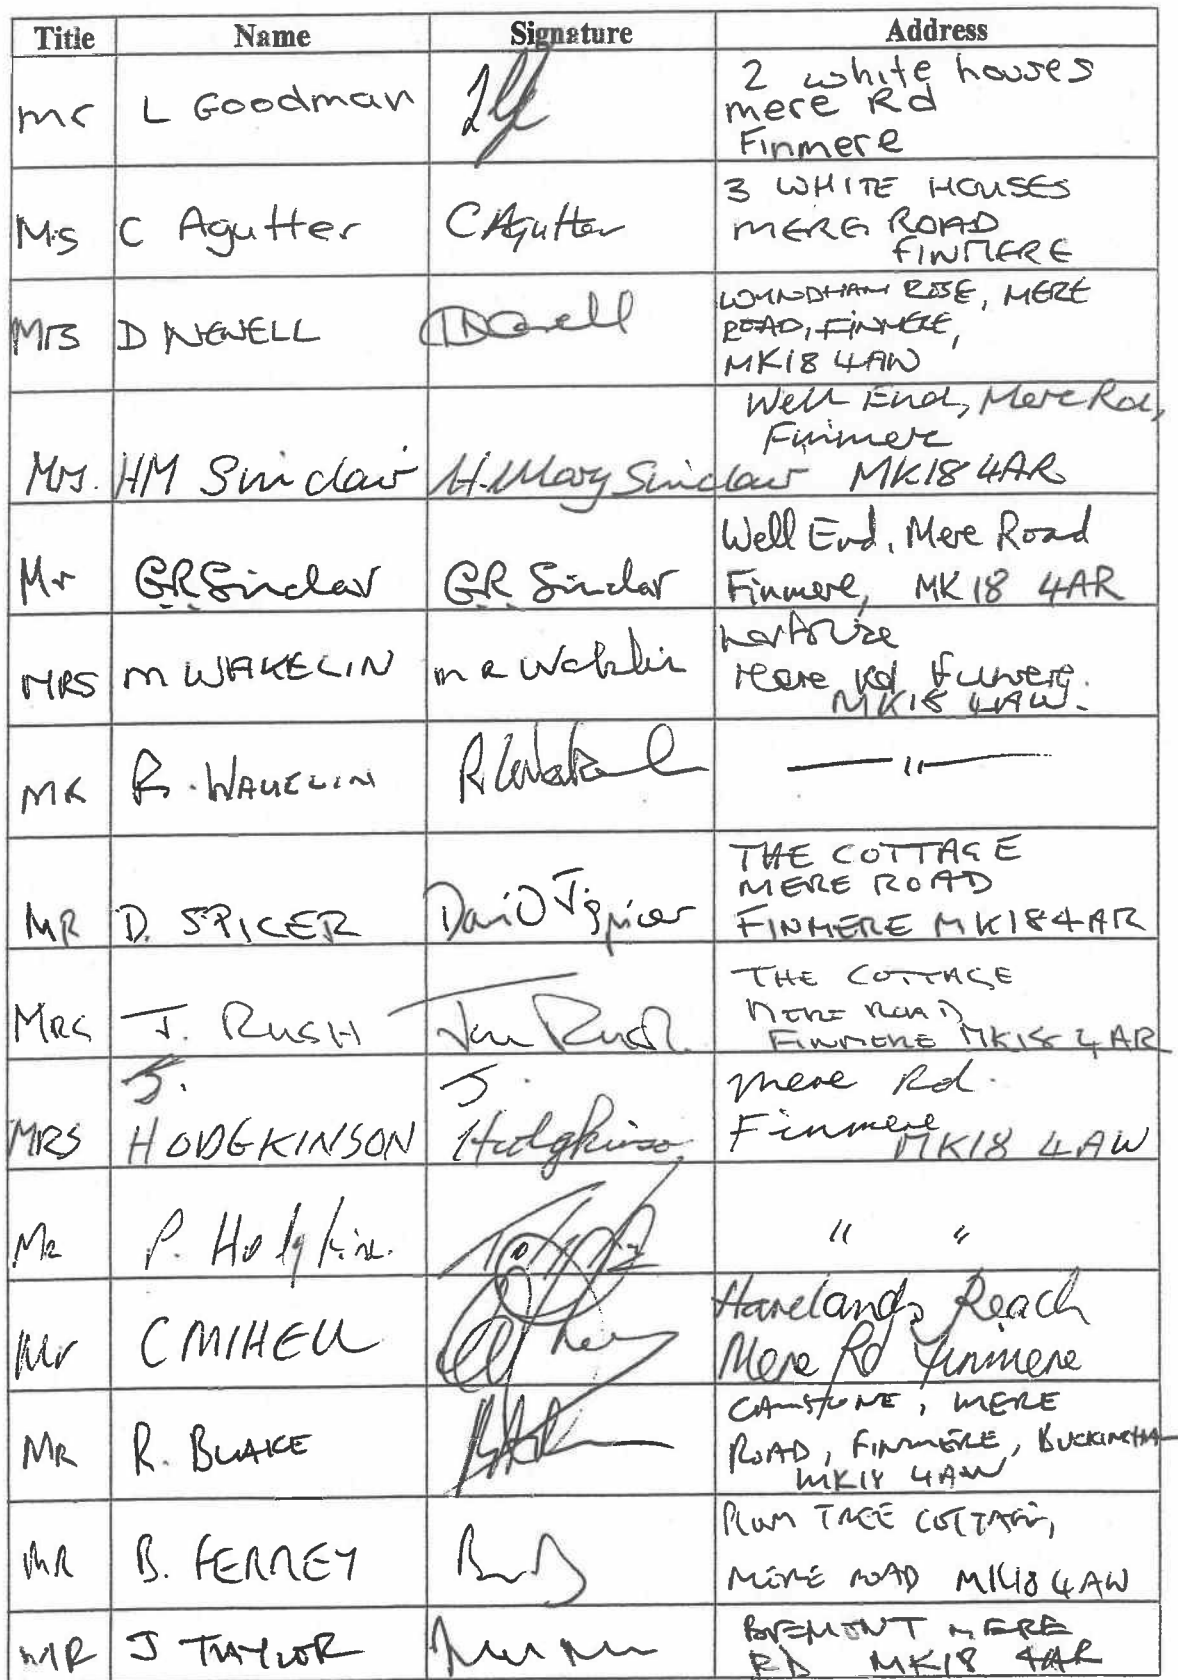 Title Name Signature Address
mr L Goodman 2 white houses
mere Rd
Finmere
Ms C Agutter C Agutter 3 WHITE HOUSES
MERE ROAD
FINMERE
Mrs D NEWELL DNewell WYNDHAM RISE, MERE
ROAD, FINMERE,
MK18 4AW
Mrs. HM Sinclair H. Mary Sinclair Well End, Mere Rd,
Finmere
MK18 4AR
Mr G.R. Sinclair G.R. Sinclair Well End, Mere Road
Finmere, MK18 4AR
MRS M WAKELIN m R Wakelin
Mere Rd Finmere.
MK18 4AW.
MR R. WAKELIN R. Wakelin — " —
MR D. SPICER David J Spicer THE COTTAGE
MERE ROAD
FINMERE MK18 4AR
MRS J. RUSH Jan Rush THE COTTAGE
MERE ROAD
FINMERE MK18 4AR
MRS J. HODGKINSON J. Hodgkinson Mere Rd.
Finmere
MK18 4AW
Mr P. Hodgkin. " "
Mr C MIHELL Harelands Reach
Mere Rd Finmere
MR R. BLAKE MERE
ROAD, FINMERE, BUCKINGHAM
MK18 4AW
MR B. FERREY PLUM TREE COTTAGE,
MERE ROAD MK18 4AW
MR J TAYLOR MERE
RD MK18 4AR